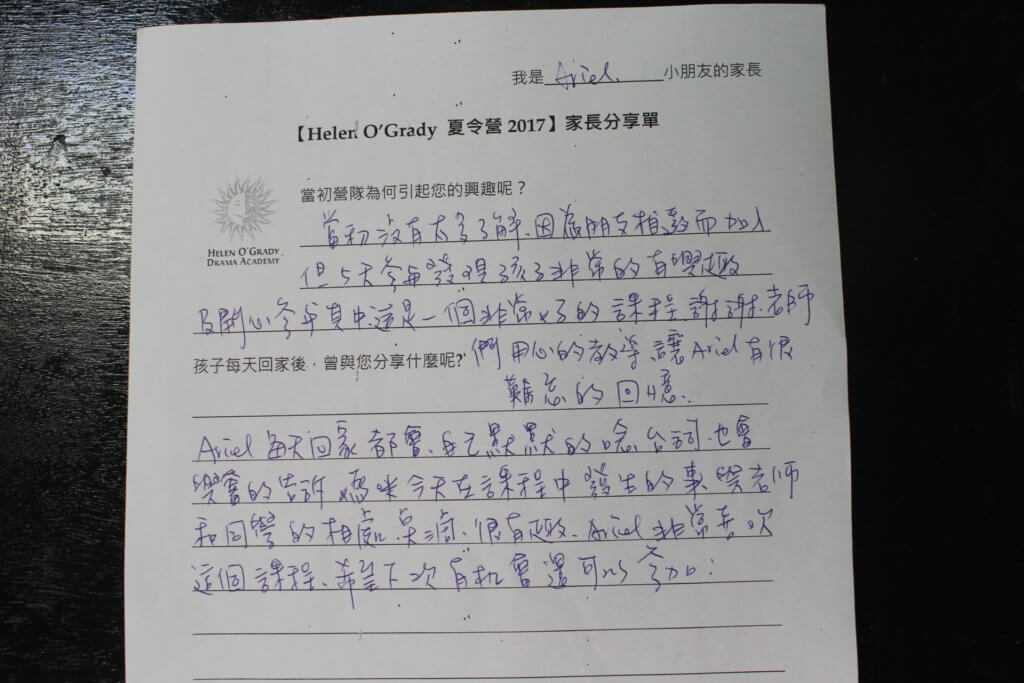 我是 Ariel. 小朋友的家長
【Helen O'Grady 夏令營 2017】家長分享單
當初營隊為何引起您的興趣呢？
HELEN O'GRADY
DRAMA ACADEMY
當初沒有太多了解.因為朋友相邀而加入
但5天參與發現孩子非常的有興趣
及開心參與其中.這是一個非常好的課程.謝謝.老師
孩子每天回家後，曾與您分享什麼呢?
們用心的教導.讓Ariel有很
難忘的回憶.
Ariel 每天回家都會.自己默默的唸.台詞.也會
興奮的告訴媽咪今天在課程中發生的事.與老師
和同學的相處.點滴.很有趣.Ariel非常喜歡
這個課程.希望下次有机會還可以參加: